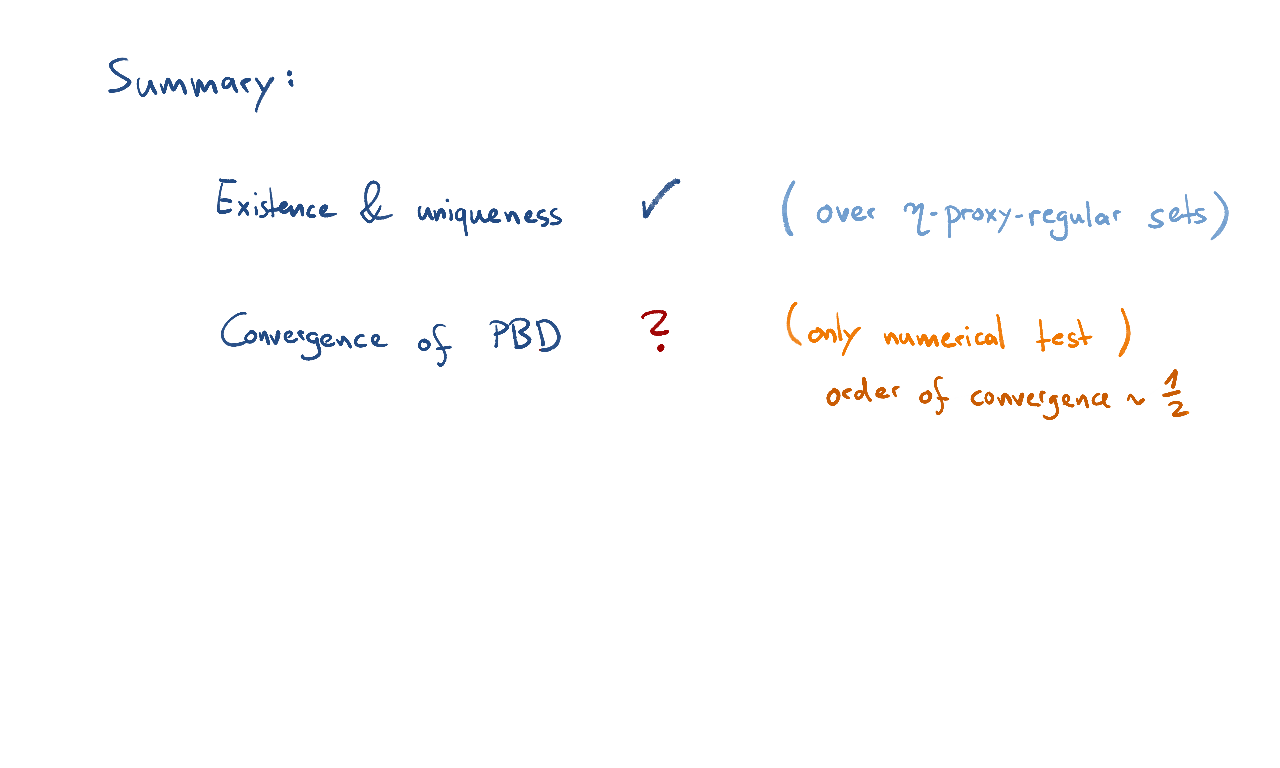 Summary:
Existence & uniqueness ✓ (over η-proxy-regular sets)
Convergence of PBD ? (only numerical test)
order of convergence ~ 1/2